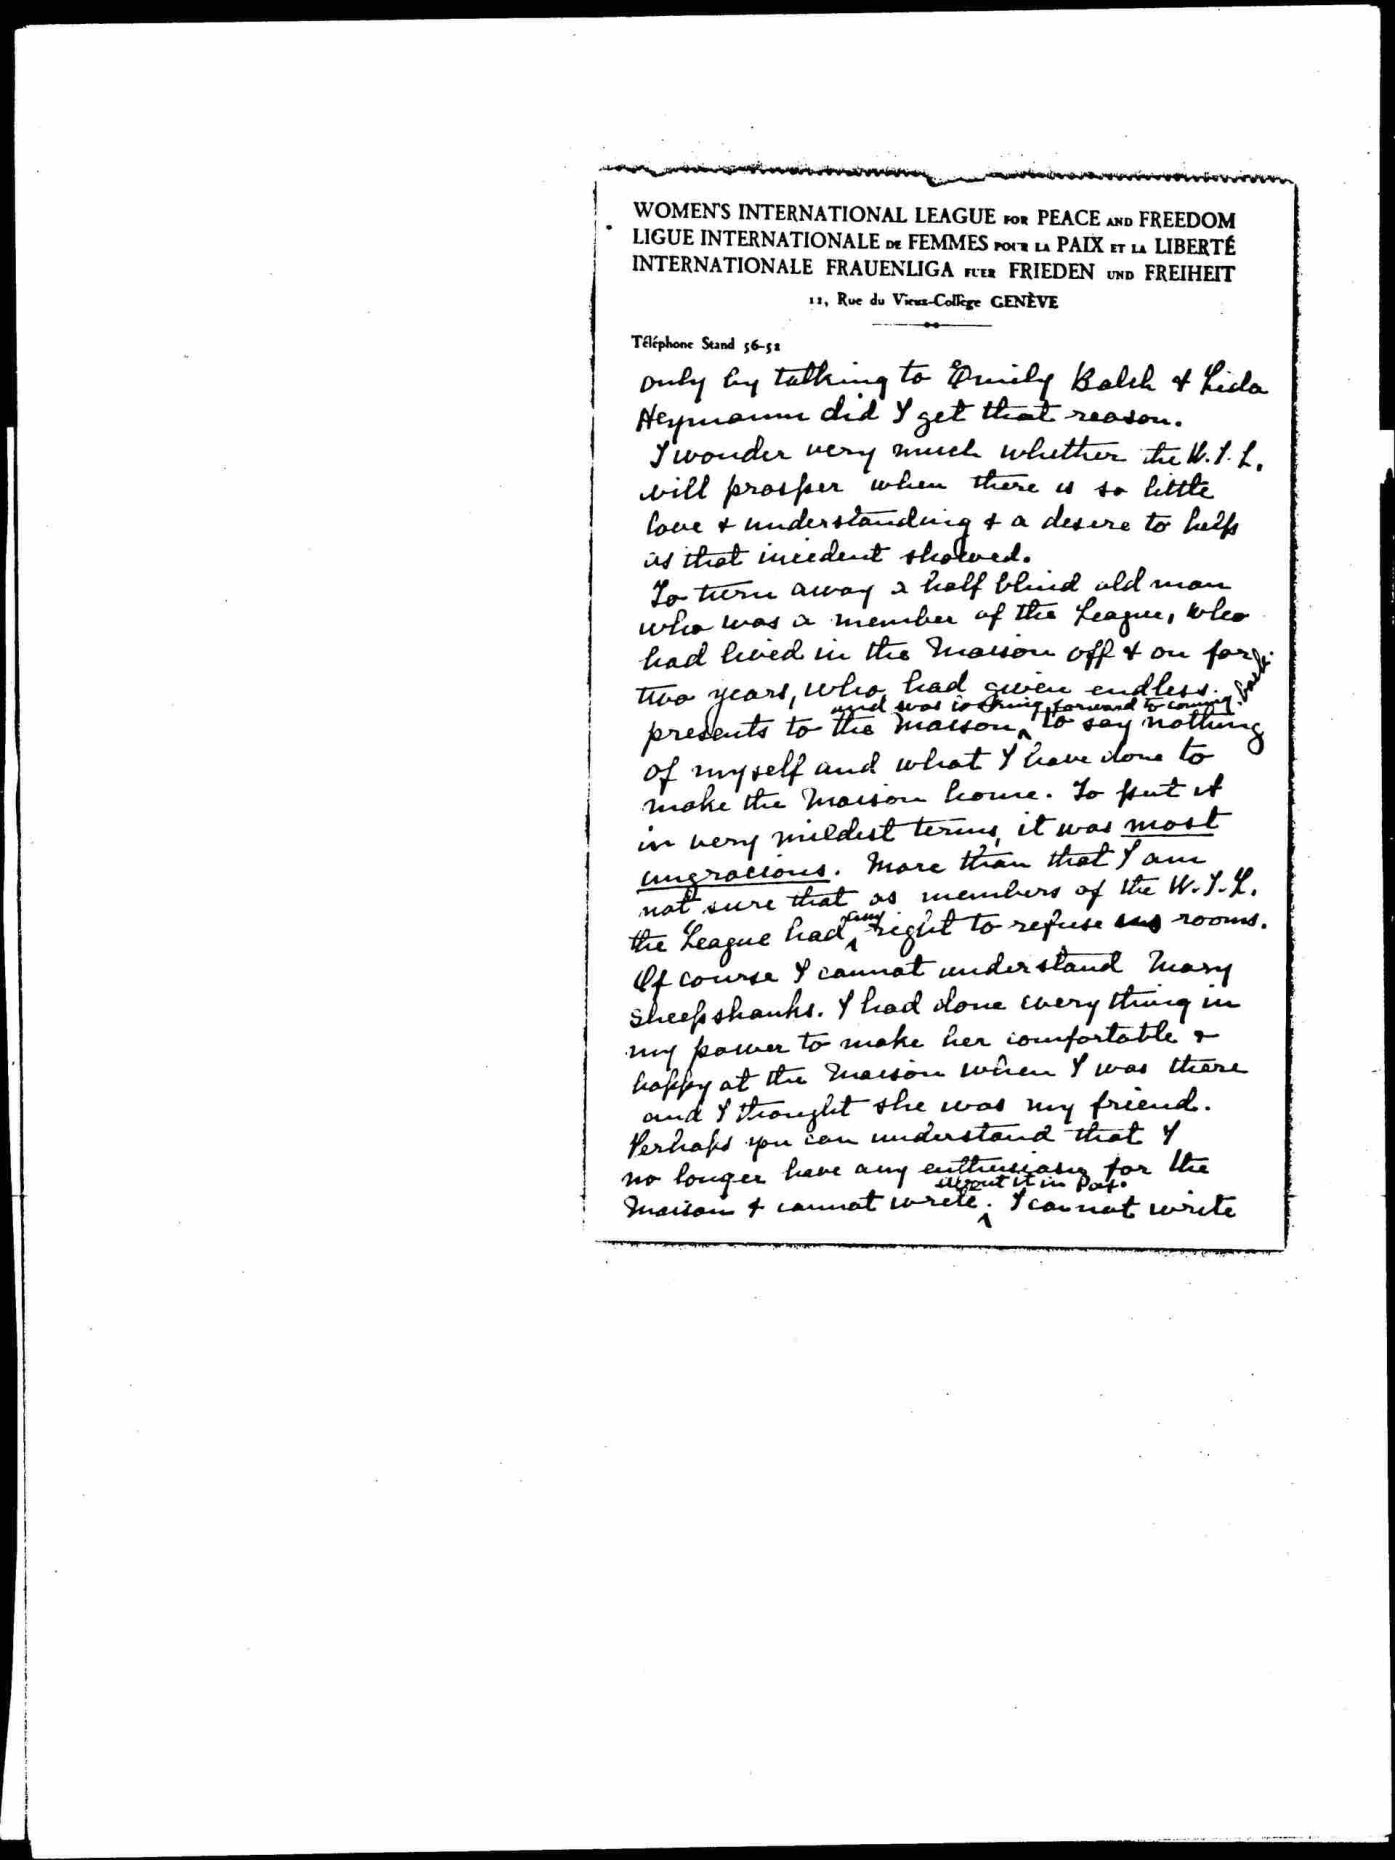 WOMEN'S INTERNATIONAL LEAGUE FOR PEACE AND FREEDOM
LIGUE INTERNATIONALE DE FEMMES POUR LA PAIX ET LA LIBERTÉ
INTERNATIONALE FRAUENLIGA FUER FRIEDEN UND FREIHEIT
12, Rue du Vieux-Collège GENÈVE
Téléphone Stand 56-52
only by talking to Emily Balch & Lida
Heymann did I get that reason.
I wonder very much whether the W.I.L.
will prosper when there is so little
love & understanding & a desire to help
as that incident showed.
To turn away a half blind old man
who was a member of the League, who
had lived in the Maison off & on for
two years, who had given endless
and was looking forward to coming back.
presents to the Maison, to say nothing
of myself and what I have done to
make the Maison home. To put it
in very mildest terms, it was most
ungracious. More than that I am
not sure that as members of the W.I.L.
any
the League had right to refuse us rooms.
Of course I cannot understand Mary
Sheepshanks. I had done every thing in
my power to make her comfortable &
happy at the Maison when I was there
and I thought she was my friend.
Perhaps you can understand that I
no longer have any enthusiasm for the
about it in Pax.
Maison & cannot write. I cannot write